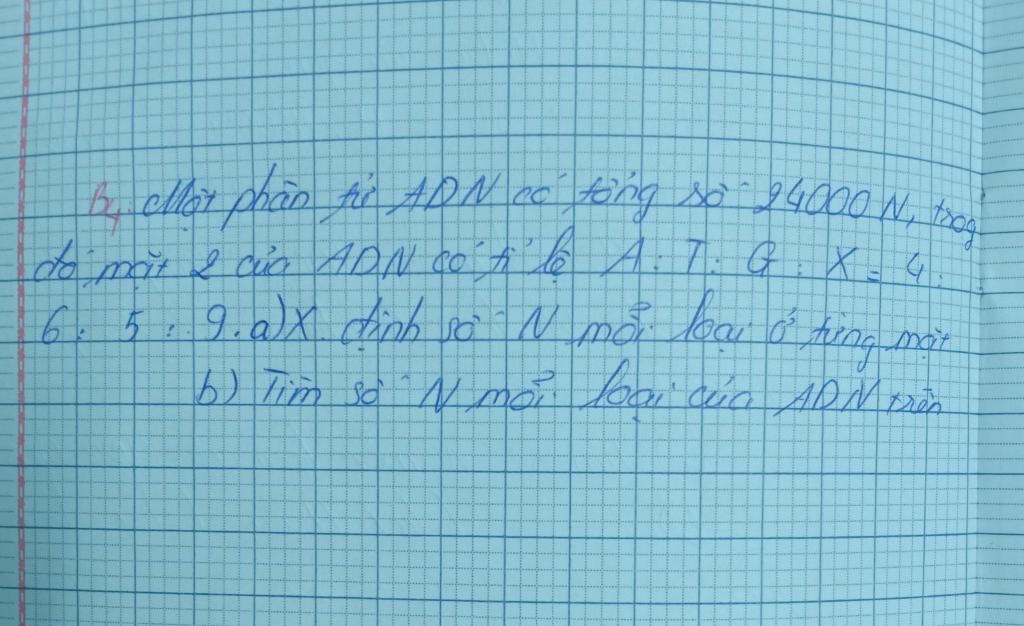 B4. Một phân tử ADN có tổng số 24000 N, trog
đó mạt 2 của ADN có tỉ lệ A : T : G : X = 4 :
6 : 5 : 9. a) X. định số N mỗi loại ở từng mạt
b) Tìm số N mỗi loại của ADN trên